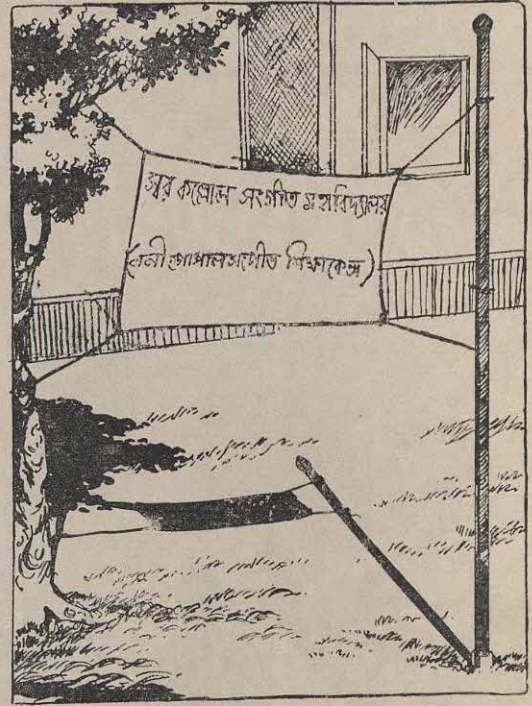 স্বর কল্লোল সংগীত মহাবিদ্যালয়
(ননী গোপাল সংগীত শিক্ষাকেন্দ্র)